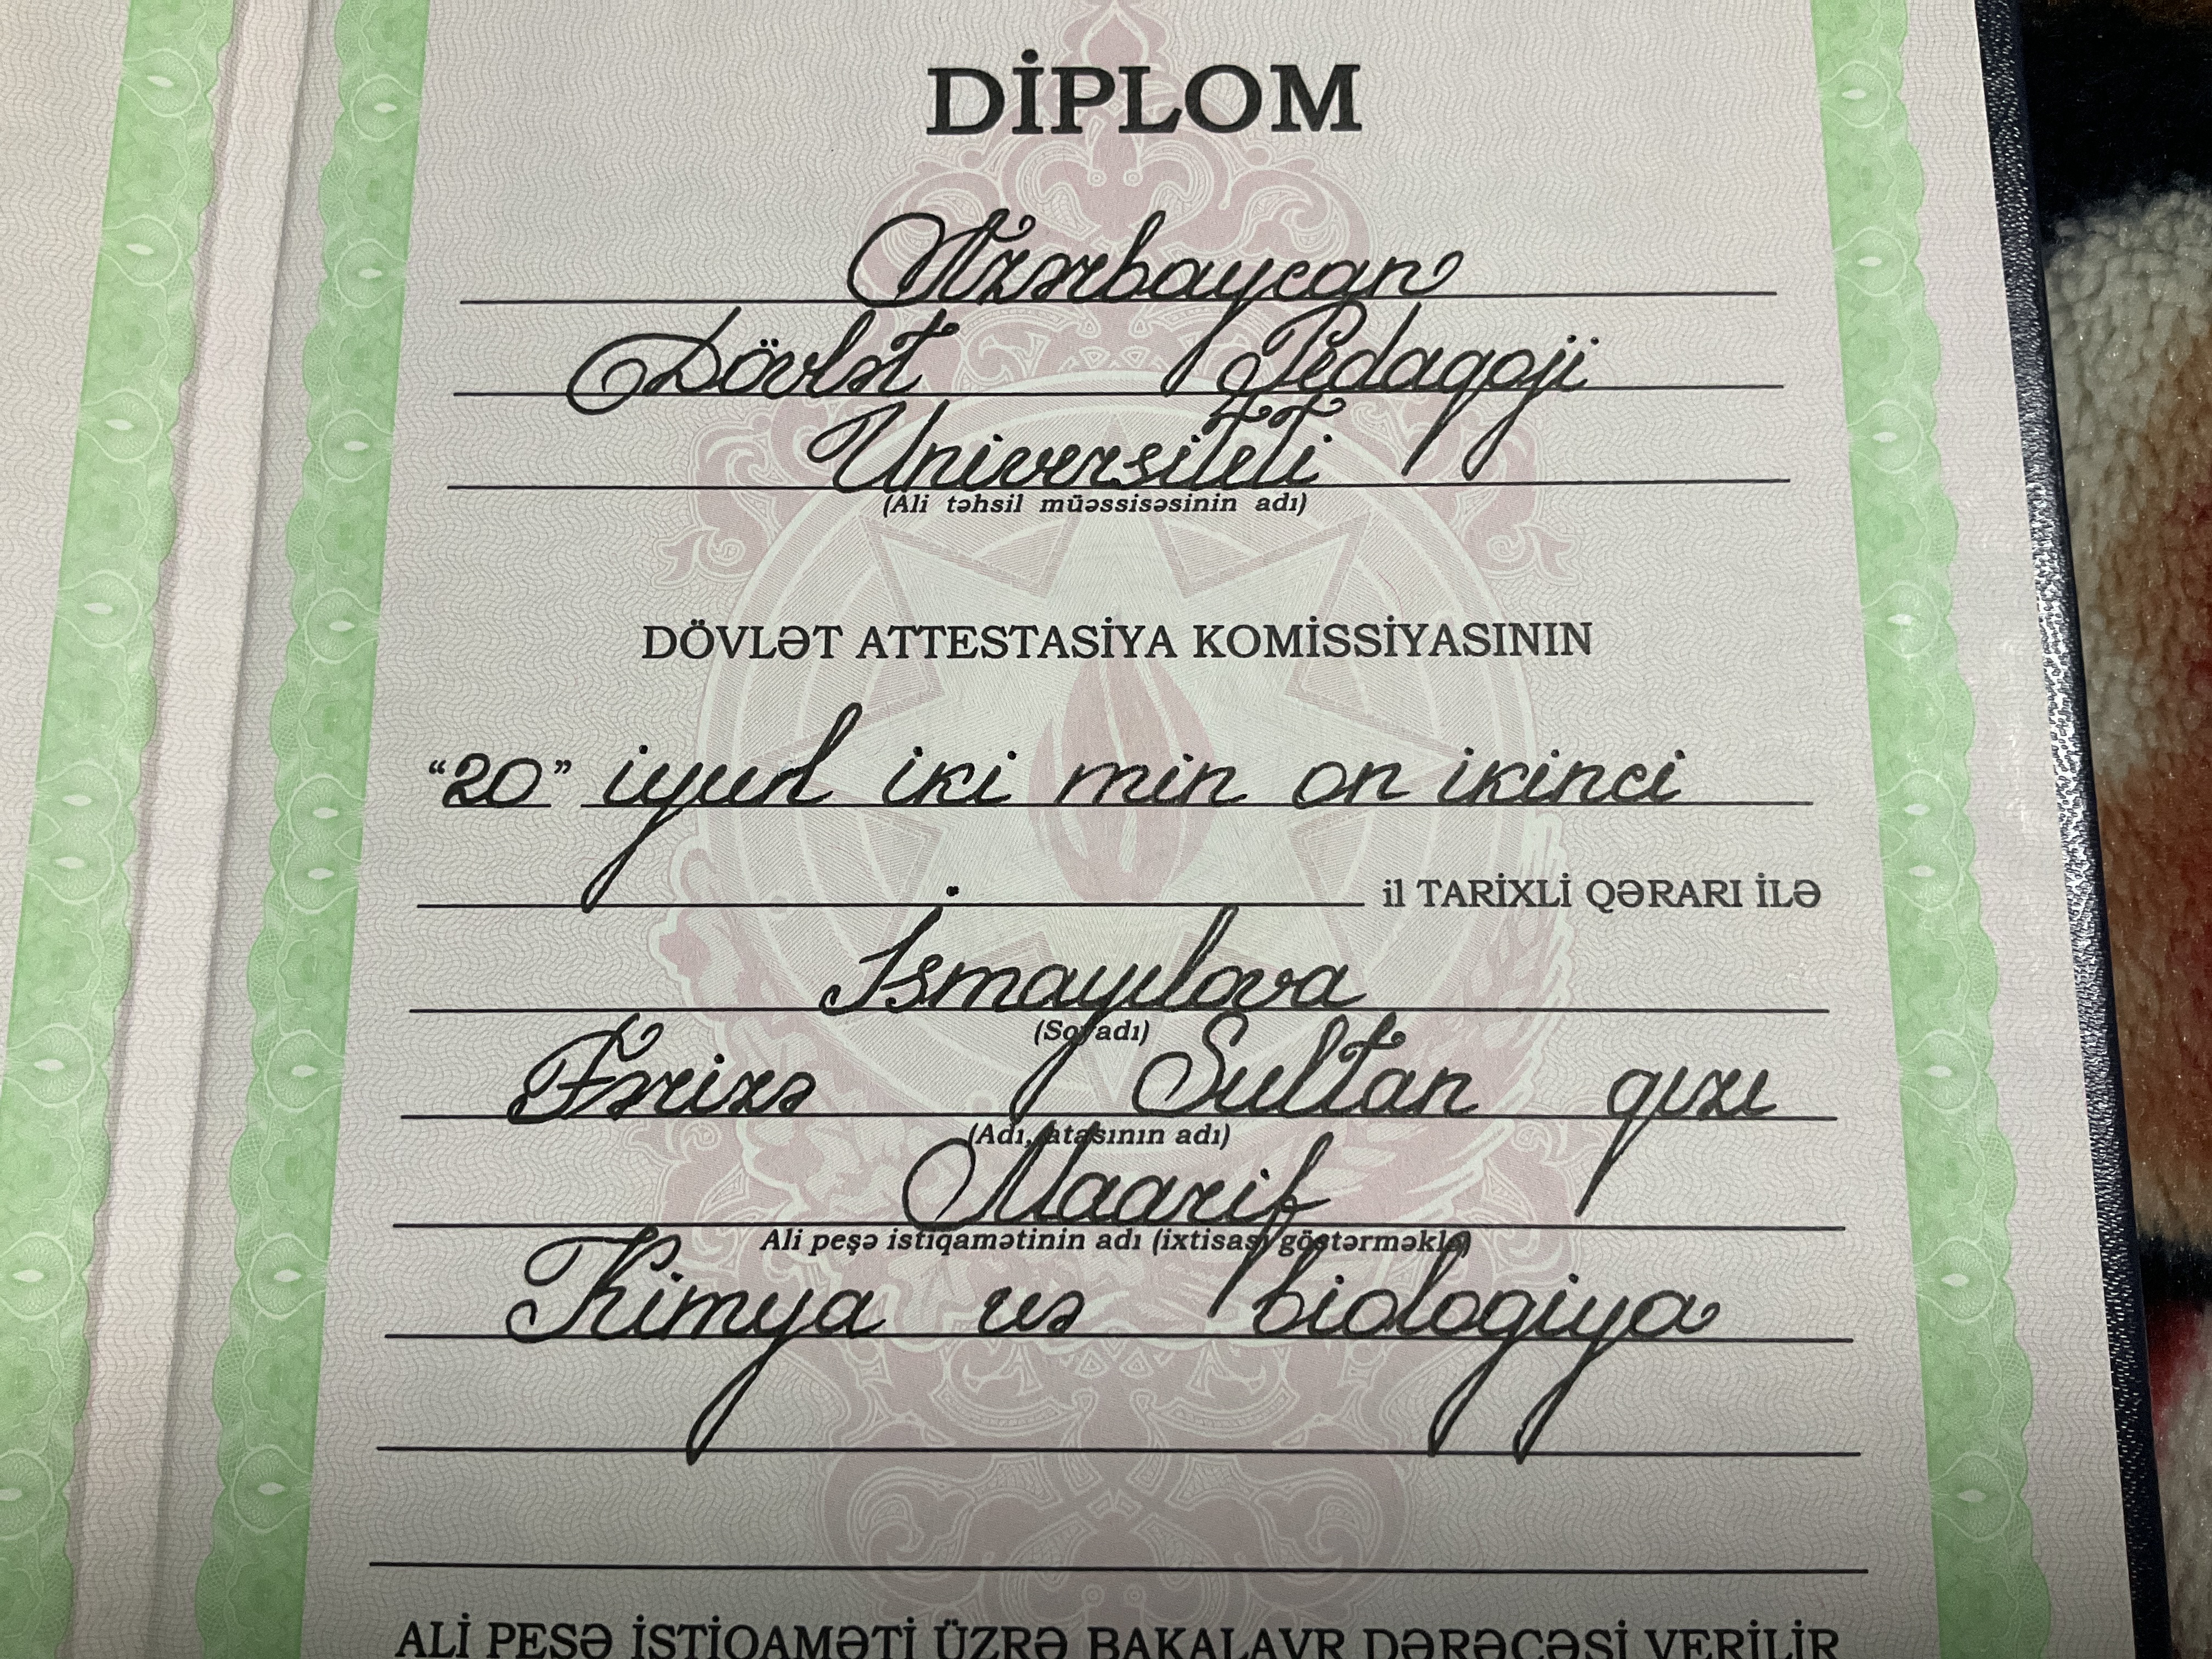 DİPLOM
Azərbaycan
Dövlət Pedaqoji
Universiteti
(Ali təhsil müəssisəsinin adı)
DÖVLƏT ATTESTASİYA KOMİSSİYASININ
“20” iyul iki min on ikinci
il TARİXLİ QƏRARI İLƏ
İsmayılova
(Soyadı)
Fərizə Sultan qızı
(Adı, atasının adı)
Maarif
Ali peşə istiqamətinin adı (ixtisası göstərməklə)
Kimya və biologiya
ALİ PEŞƏ İSTİQAMƏTİ ÜZRƏ BAKALAVR DƏRƏCƏSİ VERİLİR